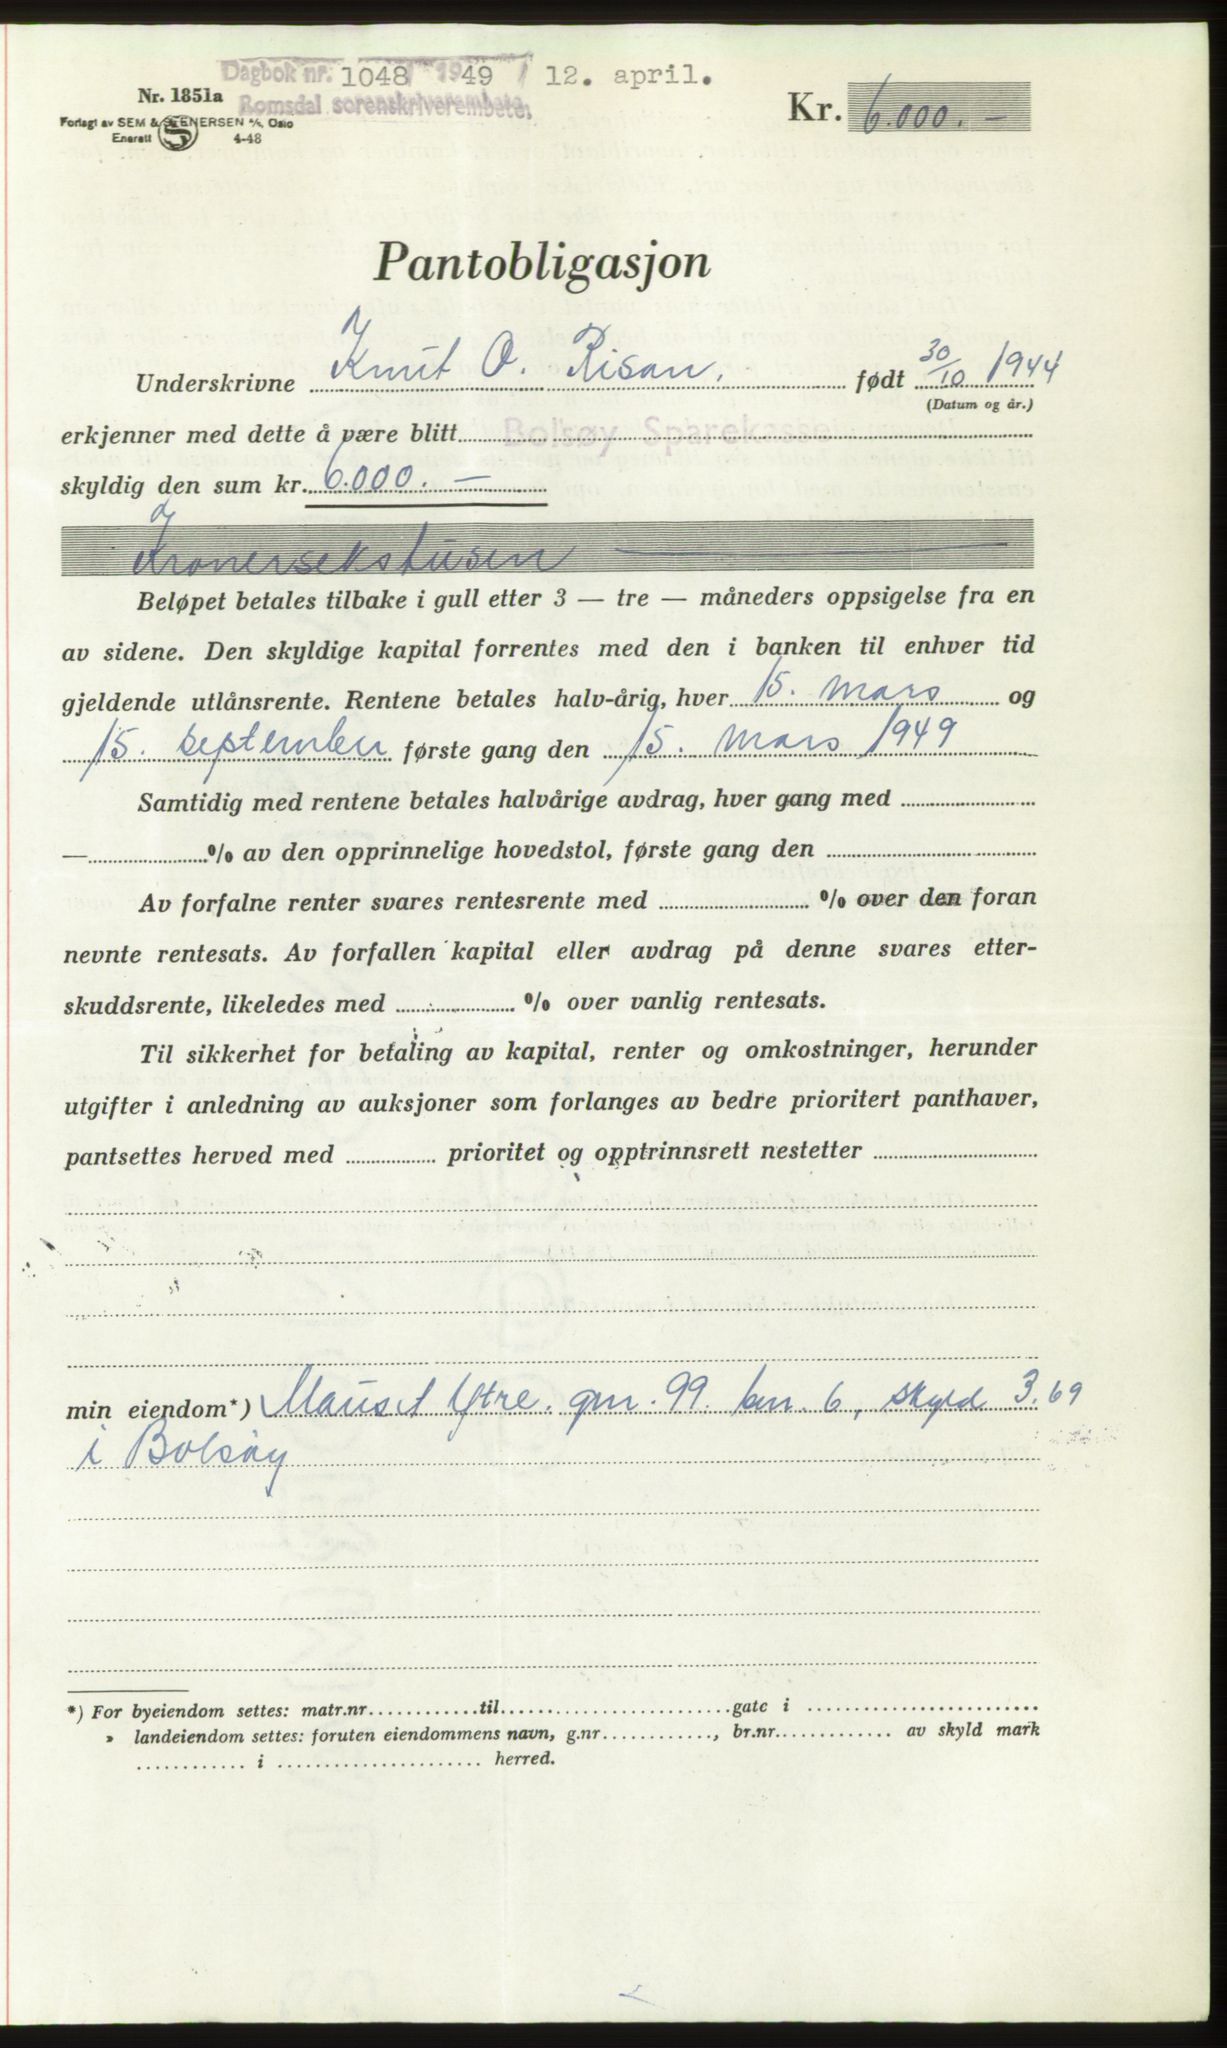 Dagbok nr. 1048 1949 12. april.
Romsdal sorenskriverembete.
Nr. 1851a
Forlagt av SEM & STENERSEN A/S, Oslo
Enerett 4-48
Kr. 6.000.—
Pantobligasjon
Underskrivne Knut O. Risan. født 30/10 1944
(Datum og år.)
erkjenner med dette å være blitt Bolsøy Sparekasse
skyldig den sum kr. 6.000.—
Kronersekstusen
Beløpet betales tilbake i gull etter 3 — tre — måneders oppsigelse fra en
av sidene. Den skyldige kapital forrentes med den i banken til enhver tid
gjeldende utlånsrente. Rentene betales halv-årig, hver 15. mars og
15. september første gang den 15. mars 1949
Samtidig med rentene betales halvårige avdrag, hver gang med
— % av den opprinnelige hovedstol, første gang den
Av forfalne renter svares rentesrente med % over den foran
nevnte rentesats. Av forfallen kapital eller avdrag på denne svares etter-
skuddsrente, likeledes med % over vanlig rentesats.
Til sikkerhet for betaling av kapital, renter og omkostninger, herunder
utgifter i anledning av auksjoner som forlanges av bedre prioritert panthaver,
pantsettes herved med prioritet og opptrinnsrett nestetter
min eiendom*) Mauset Ytre. gnr. 99. bnr. 6, skyld 3.69
i Bolsøy
*) For byeiendom settes: matr.nr............til..........................gate i ..........................
» landeiendom settes: foruten eiendommens navn, g.nr............, br.nr............. av skyld mark
............ i ...................... herred.